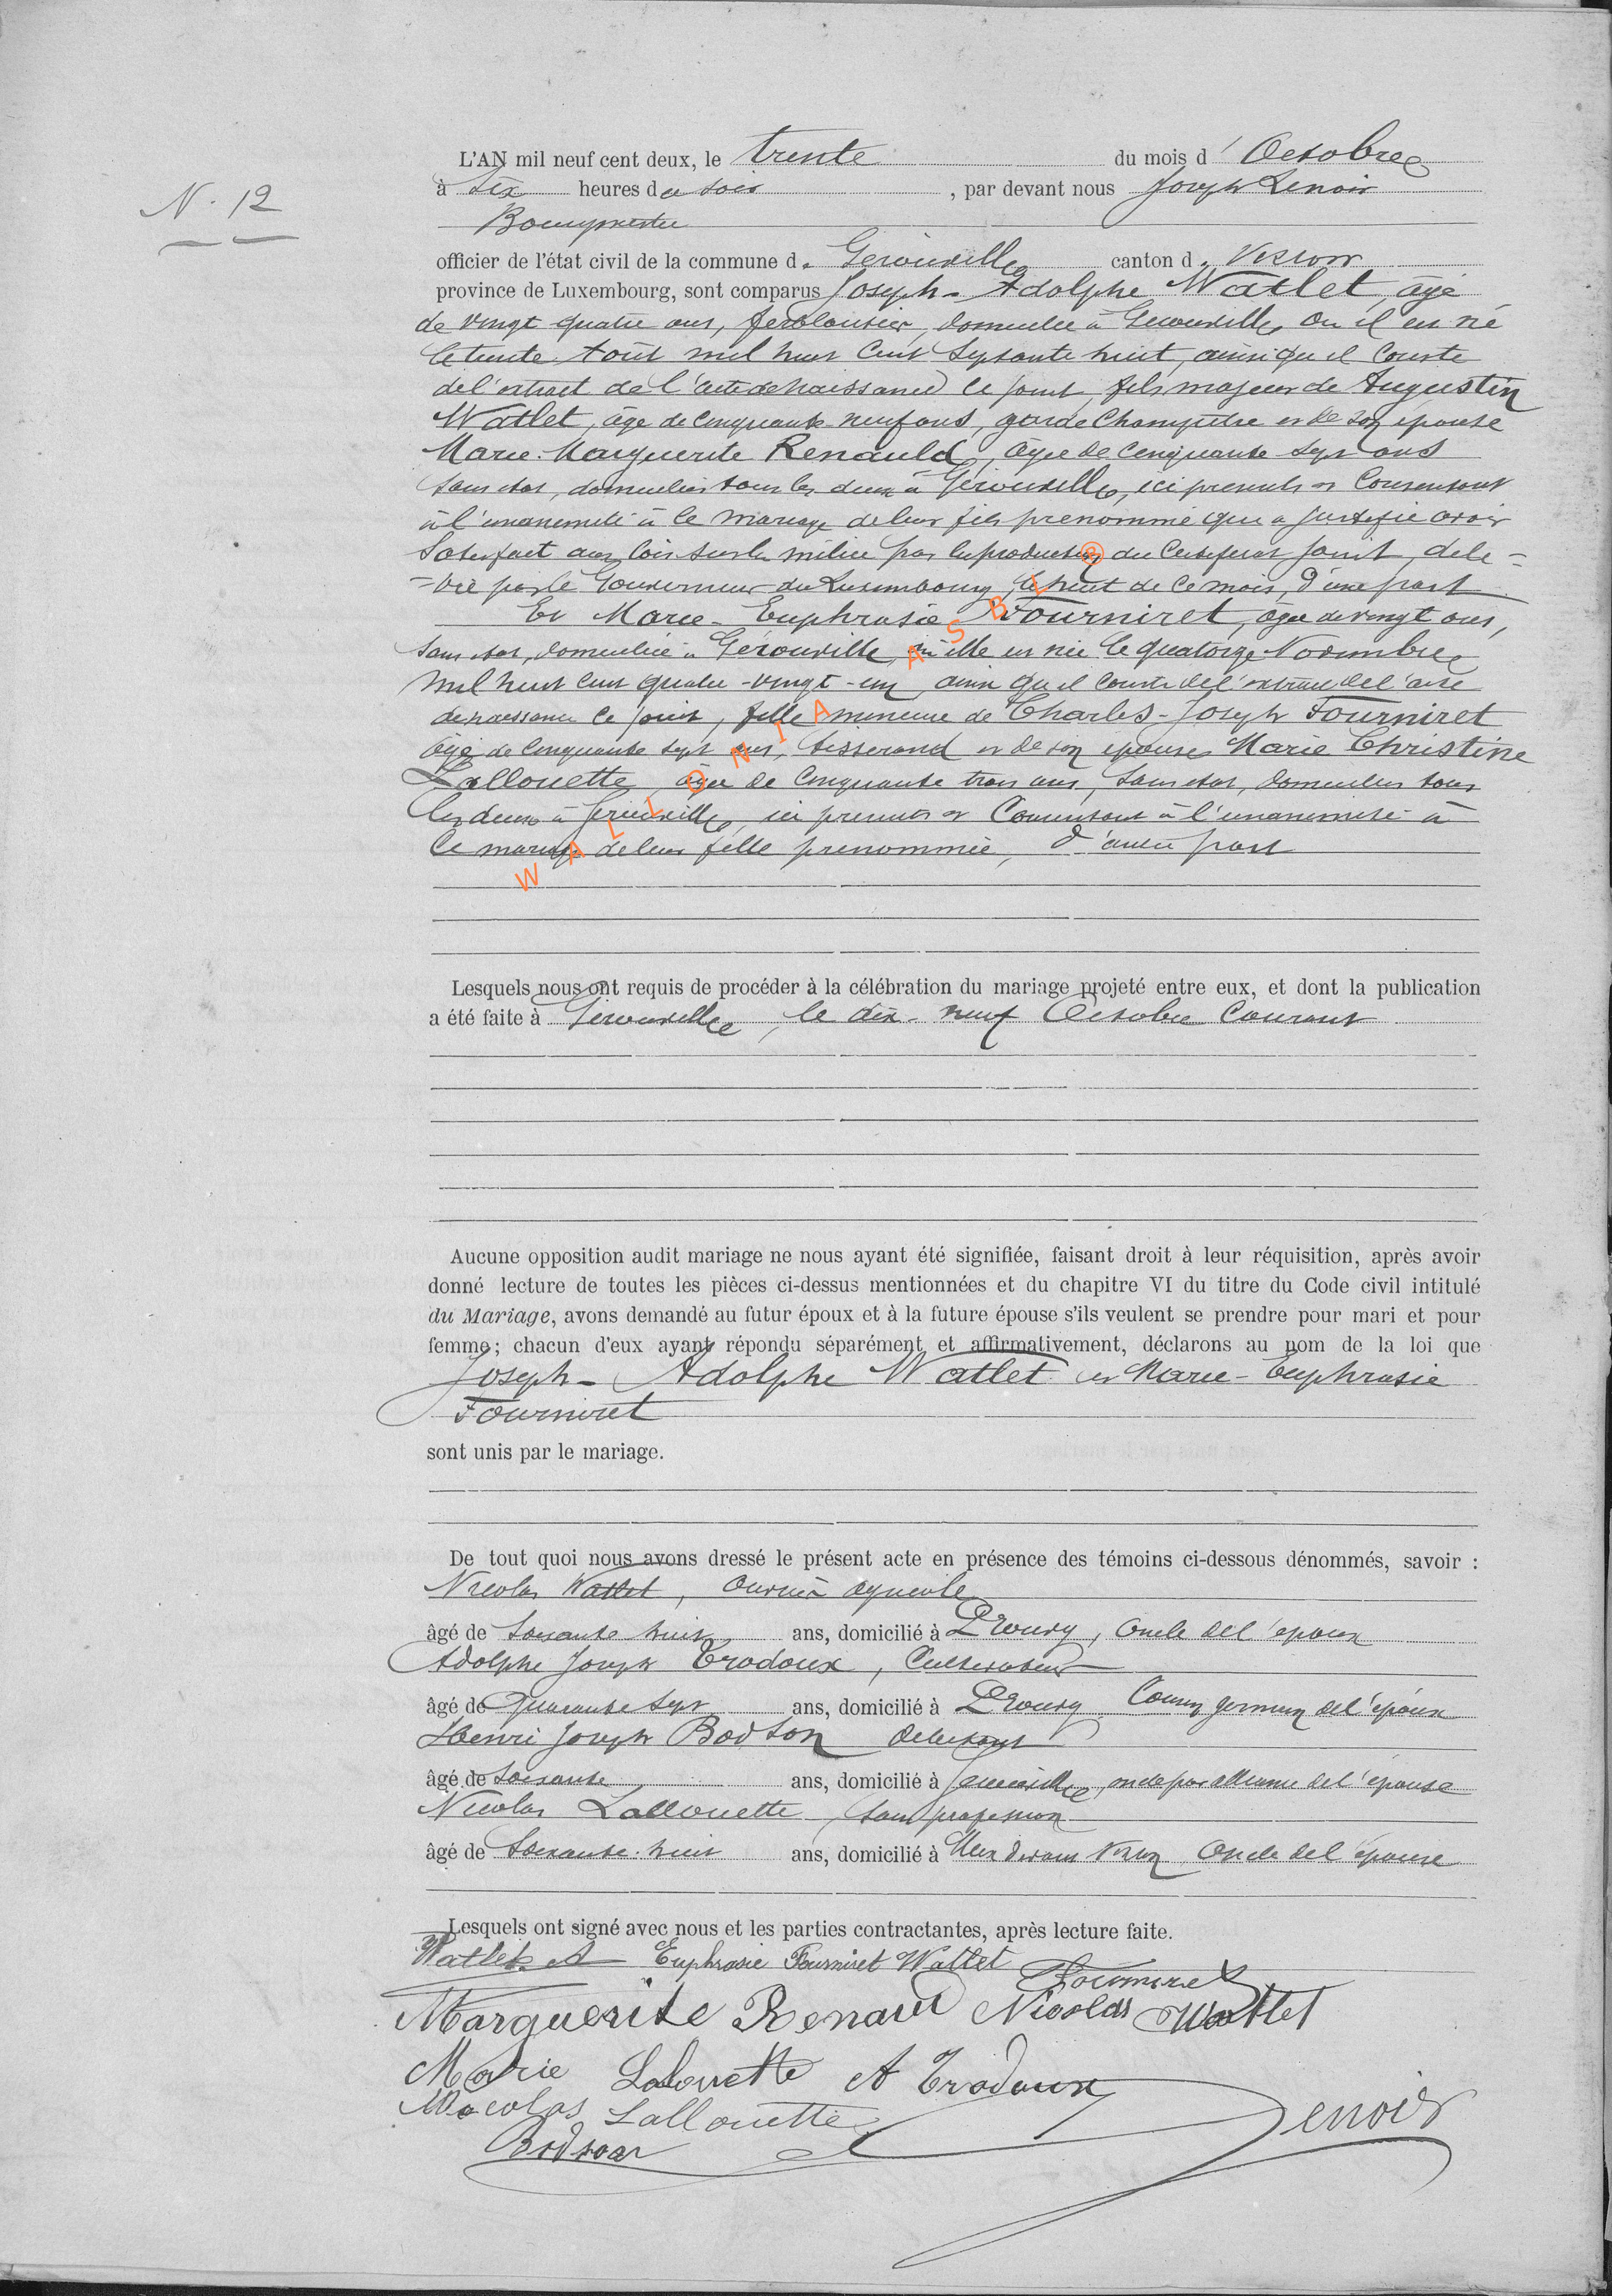 N. 12
L'AN mil neuf cent deux, le trente du mois d'Octobre
à Six heures du soir, par devant nous Joseph Lenoir
Bourgmestre
officier de l'état civil de la commune de Gérouville canton de Virton
province de Luxembourg, sont comparus Joseph-Adolphe Watlet, âgé
de vingt quatre ans, ferblantier, domicilié à Gérouville, où il est né
le trente Août mil huit cent septante huit, ainsi qu'il conste
de l'extrait de l'acte de naissance ci joint, fils majeur de Augustin
Watlet, âgé de cinquante neuf ans, garde champêtre et de son épouse
Marie-Marguerite Renauld, âgée de cinquante sept ans
sans état, domiciliés tous les deux à Gérouville, ici présents et consentant
à l'unanimité à ce mariage de leur fils prénommé qui a justifié avoir
satisfait aux lois sur la milice par la production du certificat joint, déli=
=vré par le Gouverneur du Luxembourg, le huit de ce mois, d'une part
Et Marie-Euphrasie Fourniret, âgée de vingt ans,
sans état, domiciliée à Gérouville, où elle est née le quatorze Novembre
mil huit cent quatre-vingt-un, ainsi qu'il conste de l'extrait de l'acte
de naissance ci joint, fille mineure de Charles-Joseph Fourniret
âgé de cinquante sept ans, tisserand et de son épouse Marie Christine
Lallouette, âgée de cinquante trois ans, sans état, domiciliés tous
les deux à Gérouville, ici présents et consentant à l'unanimité à
ce mariage de leur fille prénommée, d'autre part
WALLONIA ASBL ®
Lesquels nous ont requis de procéder à la célébration du mariage projeté entre eux, et dont la publication
a été faite à Gérouville, le dix-neuf Octobre courant
Aucune opposition audit mariage ne nous ayant été signifiée, faisant droit à leur réquisition, après avoir
donné lecture de toutes les pièces ci-dessus mentionnées et du chapitre VI du titre du Code civil intitulé
du Mariage, avons demandé au futur époux et à la future épouse s'ils veulent se prendre pour mari et pour
femme; chacun d'eux ayant répondu séparément et affirmativement, déclarons au nom de la loi que
Joseph-Adolphe Watlet et Marie-Euphrasie
Fourniret
sont unis par le mariage.
De tout quoi nous avons dressé le présent acte en présence des témoins ci-dessous dénommés, savoir :
Nicolas Watlet, ouvrier agricole
âgé de soixante huit ans, domicilié à Limes, oncle de l'époux
Adolphe Joseph Trodoux, Cultivateur
âgé de quarante sept ans, domicilié à Cousin germain de l'époux
Henri Joseph Bodson débitant
âgé de soixante ans, domicilié à Gérouville, oncle par alliance de l'épouse
Nicolas Lallouette, sans profession
âgé de soixante-huit ans, domicilié à Meix devant Virton oncle de l'épouse
Lesquels ont signé avec nous et les parties contractantes, après lecture faite.
Watlet A Euphrasie Fourniret Watlet
Fourniret
Marguerite Renaud Nicolas Watlet
Marie Lalouette A Trodoux
Nicolas Lallouette Lenoir
Bodson